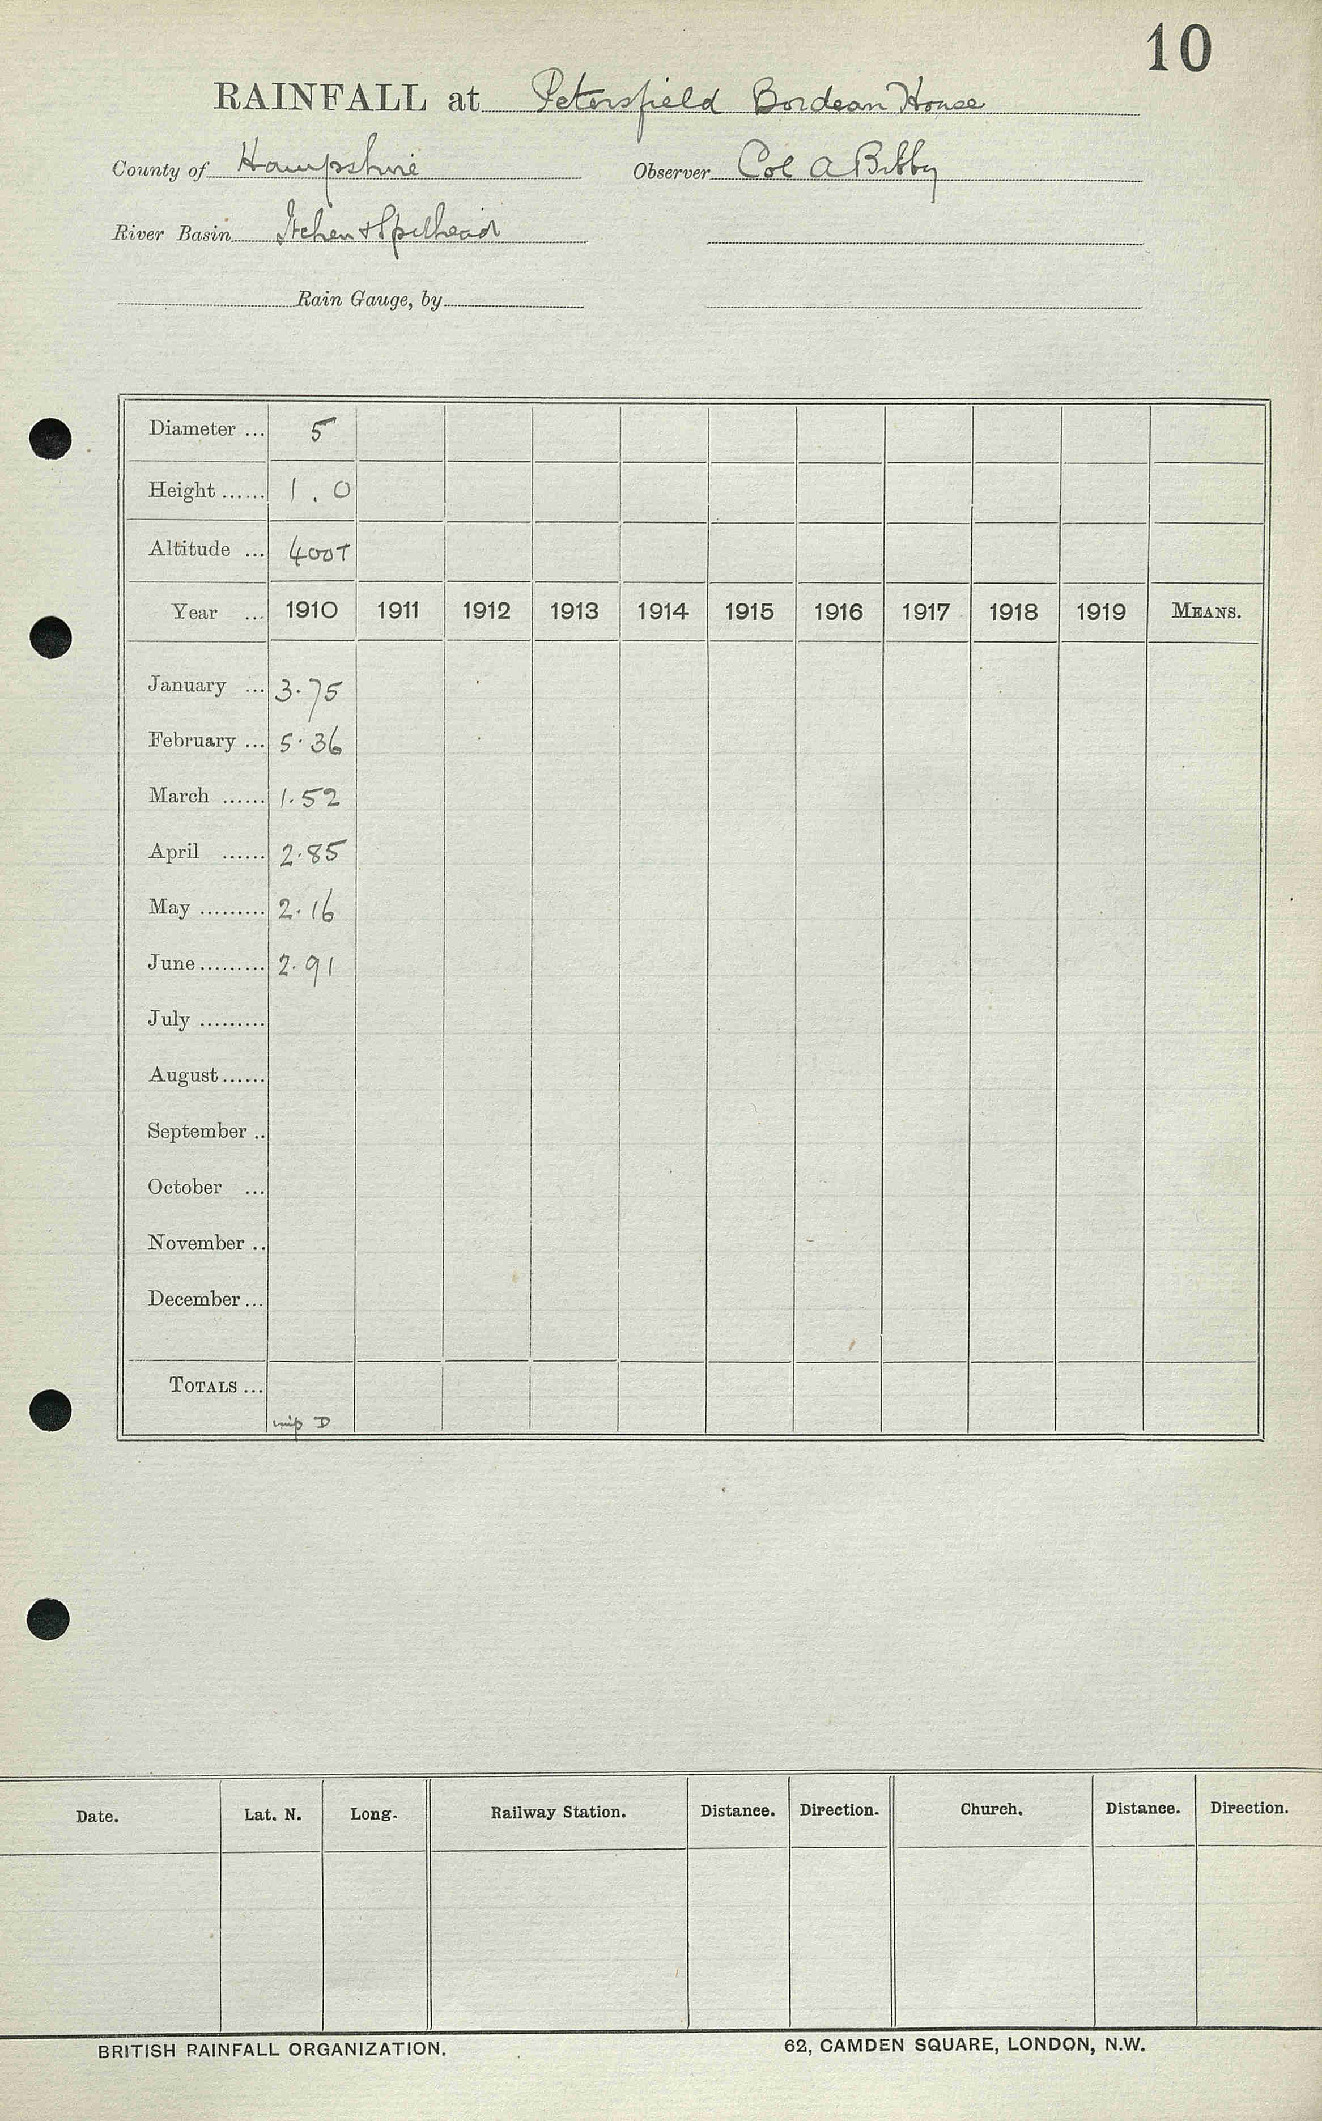 10
RAINFALL at Petersfield Bordean House
County of Hampshire Observer Col A Bibby
River Basin Itchen & Spithead
Rain Gauge, by
Diameter ... 5
Height ...... 1.0
Altitude ... 400T
Year ... 1910 1911 1912 1913 1914 1915 1916 1917 1918 1919 MEANS.
January ... 3.75
February ... 5.36
March ...... 1.52
April ...... 2.85
May ......... 2.16
June ......... 2.91
July .........
August ......
September ..
October ...
November ..
December ...
TOTALS ...
D
Date. Lat. N. Long. Railway Station. Distance. Direction. Church. Distance. Direction.
BRITISH RAINFALL ORGANIZATION. 62, CAMDEN SQUARE, LONDON, N.W.